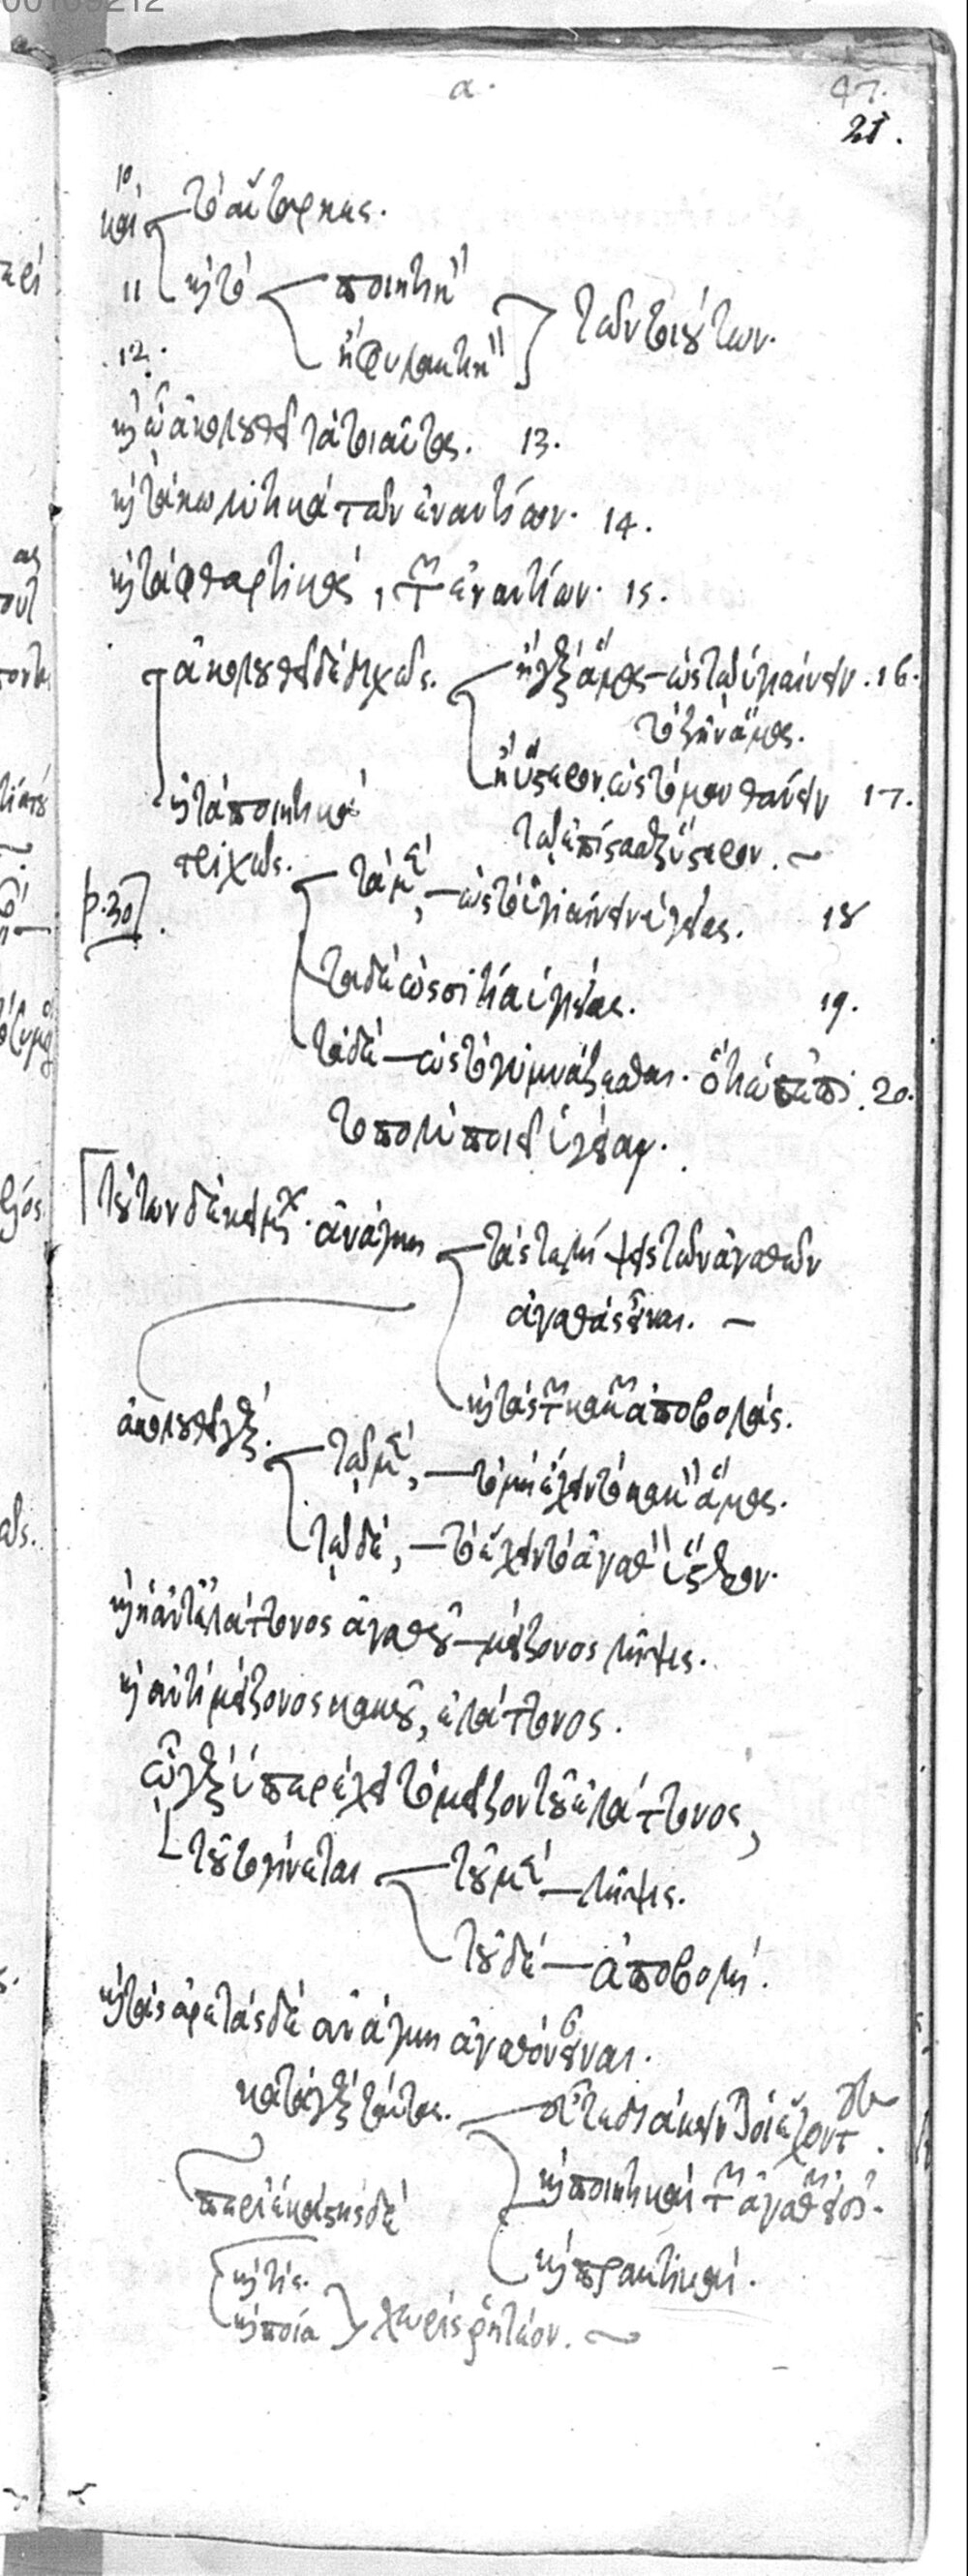 α.
47.
21.
10
καὶ τὸ αὔταρκες.
11 καὶ τὸ ποιητικὸν
12. ἢ φυλακτικὸν τῶν τοιούτων.
καὶ ᾧ ἀκολουθεῖ τὰ τοιαῦτα. 13.
καὶ τὰ κωλυτικὰ τῶν ἐναντίων. 14.
καὶ τὰ φθαρτικὰ, τῶν ἐναντίων. 15.
ἀκολουθεῖ δὲ διχῶς. ἢ γὰρ ἅμα – ὡς τῷ ὑγιαίνειν. 16.
τὸ ζῆν ἅμα.
ἢ ὕστερον, ὡς τῷ μανθάνειν 17.
τὸ ἐπίστασθαι ὕστερον.
καὶ τὰ ποιητικὰ
τριχῶς. τὰ μὲν, – ὡς τὸ ὑγιαίνειν ὑγιείας. 18
p. 30].
τὰ δὲ ὡς σιτία ὑγιείας. 19.
τὰ δὲ – ὡς τὸ γυμνάζεσθαι. ὅτι ὡς ἐπὶ 20.
τὸ πολὺ ποιεῖ ὑγίειαν.
τούτων δὲ κειμένων. ἀνάγκη τάς τε λήψεις τῶν ἀγαθῶν
ἀγαθὰς εἶναι. –
καὶ τὰς τῶν κακῶν ἀποβολάς.
ἀκολουθεῖ γὰρ. τῷ μὲν, – τὸ μὴ ἔχειν τὸ κακὸν ἅμα.
τῷ δὲ, – τὸ ἔχειν τὸ ἀγαθὸν ὕστερον.
καὶ ἡ ἀντ' ἐλάττονος ἀγαθοῦ – μείζονος λῆψις.
καὶ ἀντὶ μείζονος κακοῦ, ἐλάττονος.
ᾧ γὰρ ὑπερέχει τὸ μεῖζον τοῦ ἐλάττονος,
τοῦτο γίνεται τοῦ μὲν – λῆψις.
τοῦ δὲ – ἀποβολή.
καὶ τὰς ἀρετὰς δὲ ἀνάγκη ἀγαθὸν εἶναι.
κατὰ γὰρ ταύτας. εὖ τε διάκεινται οἱ ἔχοντες.
καὶ ποιητικαὶ τῶν ἀγαθῶν εἰσι.
περὶ ἑκάστης δὲ
καὶ πρακτικαί.
καὶ τίς.
καὶ ποία χωρὶς ῥητέον.